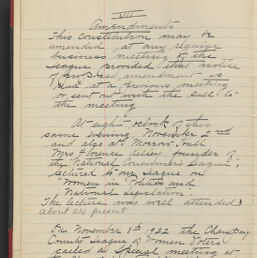 VII
Amendments
This constitution may be
amended at any regular
business meeting of the
League provided that notice
of proposed amendment is
read at a previous meeting
or sent out with the call to
the meeting
At eight o'clock of this
same evening, November 2nd
and also at Morrow Hall
Mrs Florence Kelley, founder of
the National Consumers League,
lectured to our League on
"Women in Politics and
National Legislation"
The lecture was well attended
About 250 present
On November 9th 1922 the Champaign
County League of Women Voters
called a special meeting at